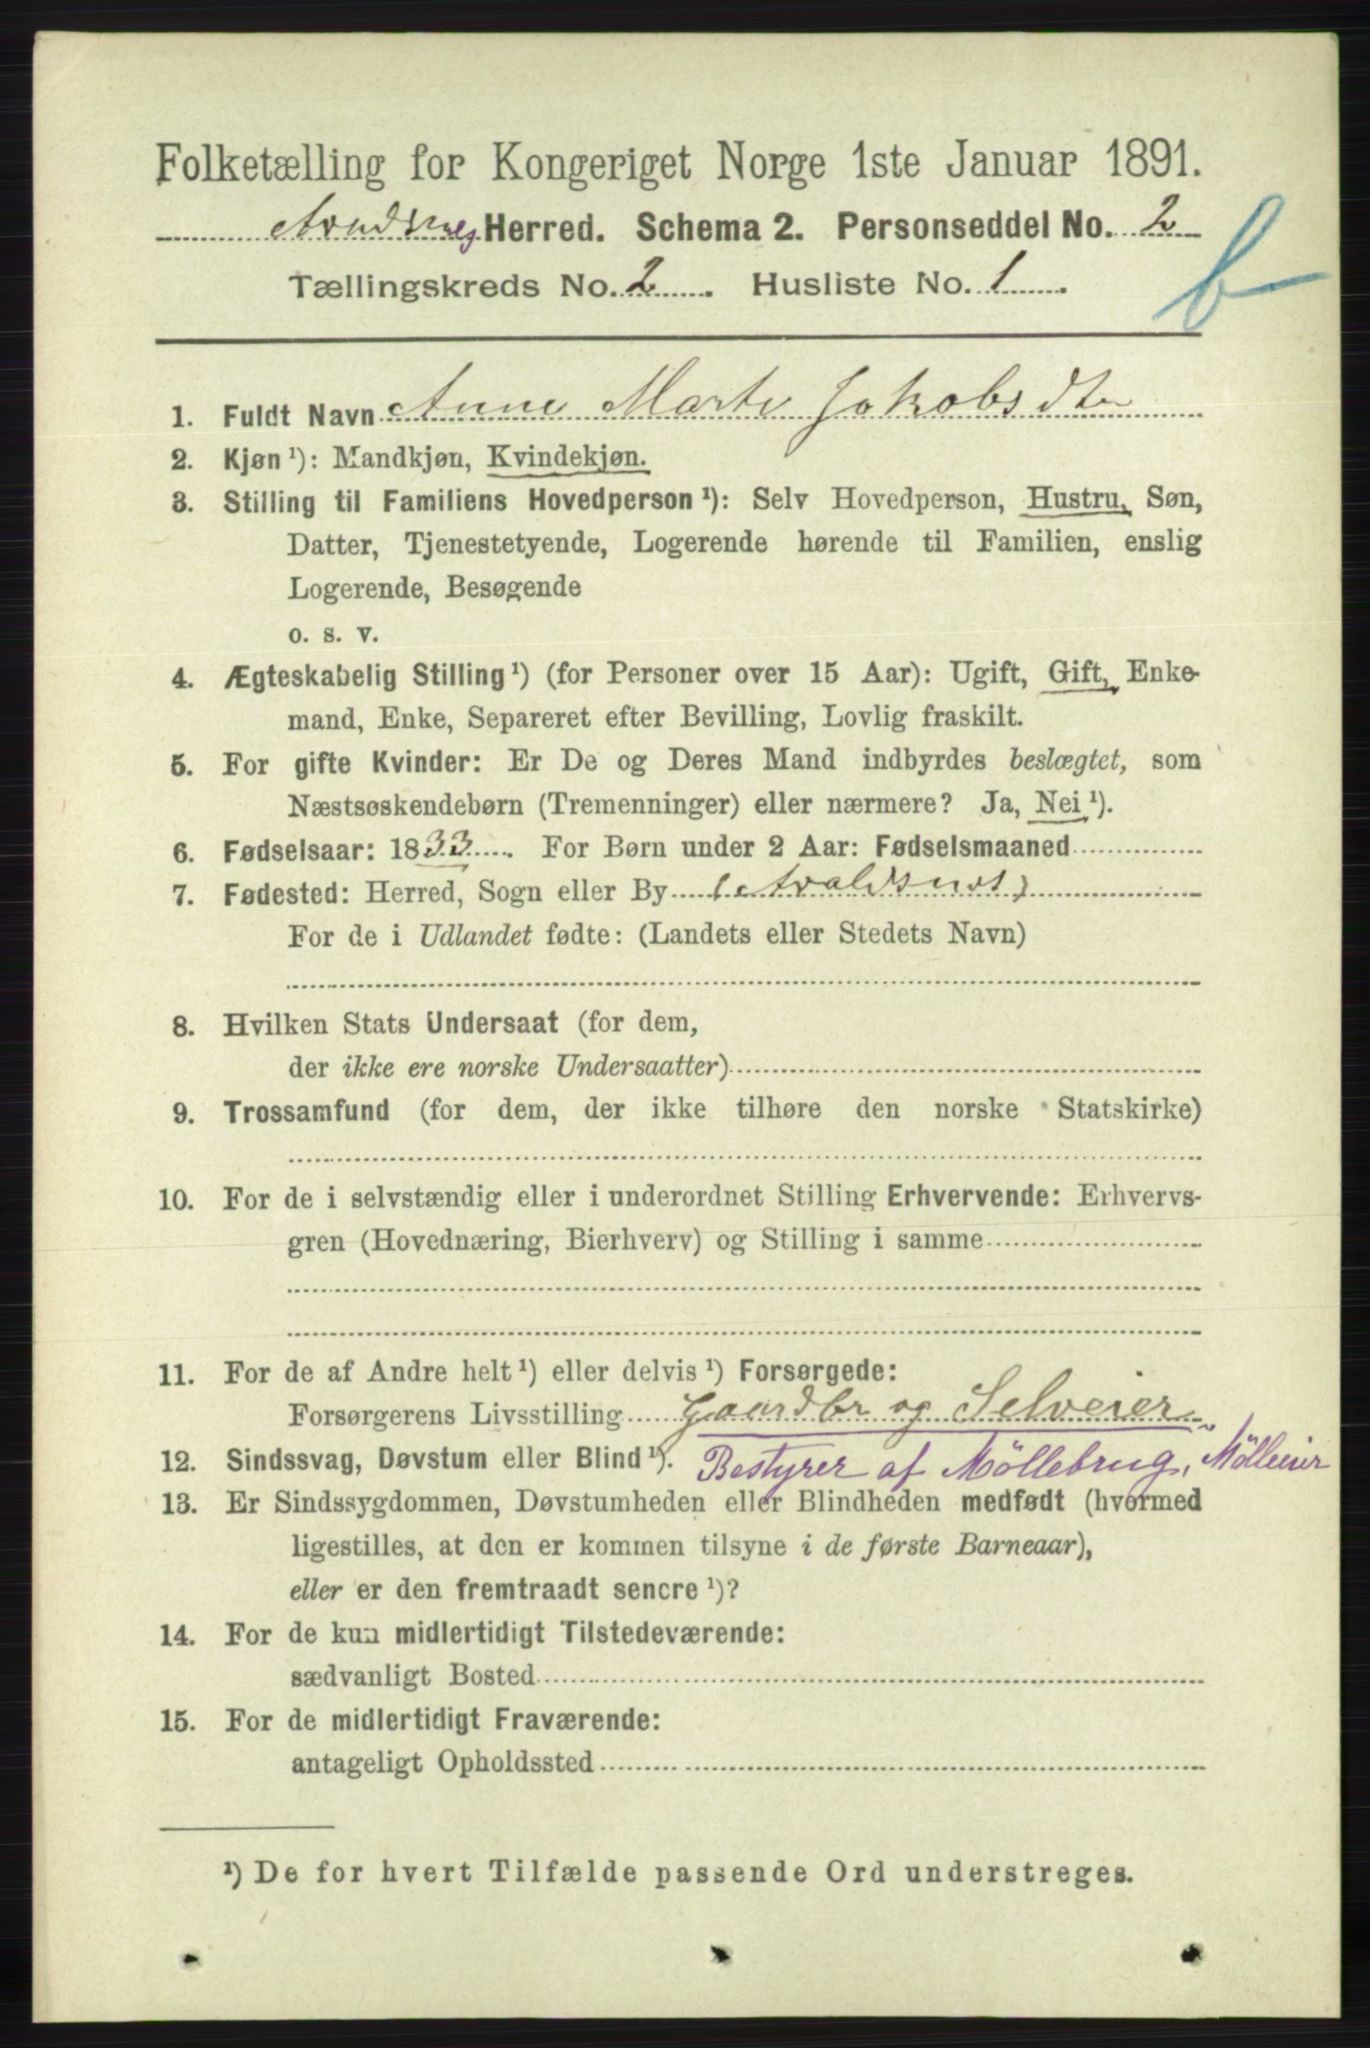 Folketælling for Kongeriget Norge 1ste Januar 1891.
Herred. Schema 2. Personseddel No. 2
Tællingskreds No. 2. Husliste No. 1.
b
1. Fuldt Navn Anne Marte Jakobsdtr
2. Kjøn ¹): Mandkjøn, Kvindekjøn.
3. Stilling til Familiens Hovedperson ¹): Selv Hovedperson, Hustru, Søn,
Datter, Tjenestetyende, Logerende hørende til Familien, enslig
Logerende, Besøgende
o. s. v.
4. Ægteskabelig Stilling ¹) (for Personer over 15 Aar): Ugift, Gift, Enke-
mand, Enke, Separeret efter Bevilling, Lovlig fraskilt.
5. For gifte Kvinder: Er De og Deres Mand indbyrdes beslægtet, som
Næstsøskendebørn (Tremenninger) eller nærmere? Ja, Nei ¹).
6. Fødselsaar: 1833. For Børn under 2 Aar: Fødselsmaaned
7. Fødested: Herred, Sogn eller By (Avaldsnes)
For de i Udlandet fødte: (Landets eller Stedets Navn)
8. Hvilken Stats Undersaat (for dem,
der ikke ere norske Undersaatter)
9. Trossamfund (for dem, der ikke tilhøre den norske Statskirke)
10. For de i selvstændig eller i underordnet Stilling Erhvervende: Erhvervs-
gren (Hovednæring, Bierhverv) og Stilling i samme
11. For de af Andre helt ¹) eller delvis ¹) Forsørgede:
Forsørgerens Livsstilling Gaardbr og Selveier
12. Sindssvag, Døvstum eller Blind ¹). Bestyrer af Möllebrug, Mölleeier
13. Er Sindssygdommen, Døvstumheden eller Blindheden medfødt (hvormed
ligestilles, at den er kommen tilsyne i de første Barneaar),
eller er den fremtraadt senere ¹)?
14. For de kun midlertidigt Tilstedeværende:
sædvanligt Bosted
15. For de midlertidigt Fraværende:
antageligt Opholdssted
¹) De for hvert Tilfælde passende Ord understreges.